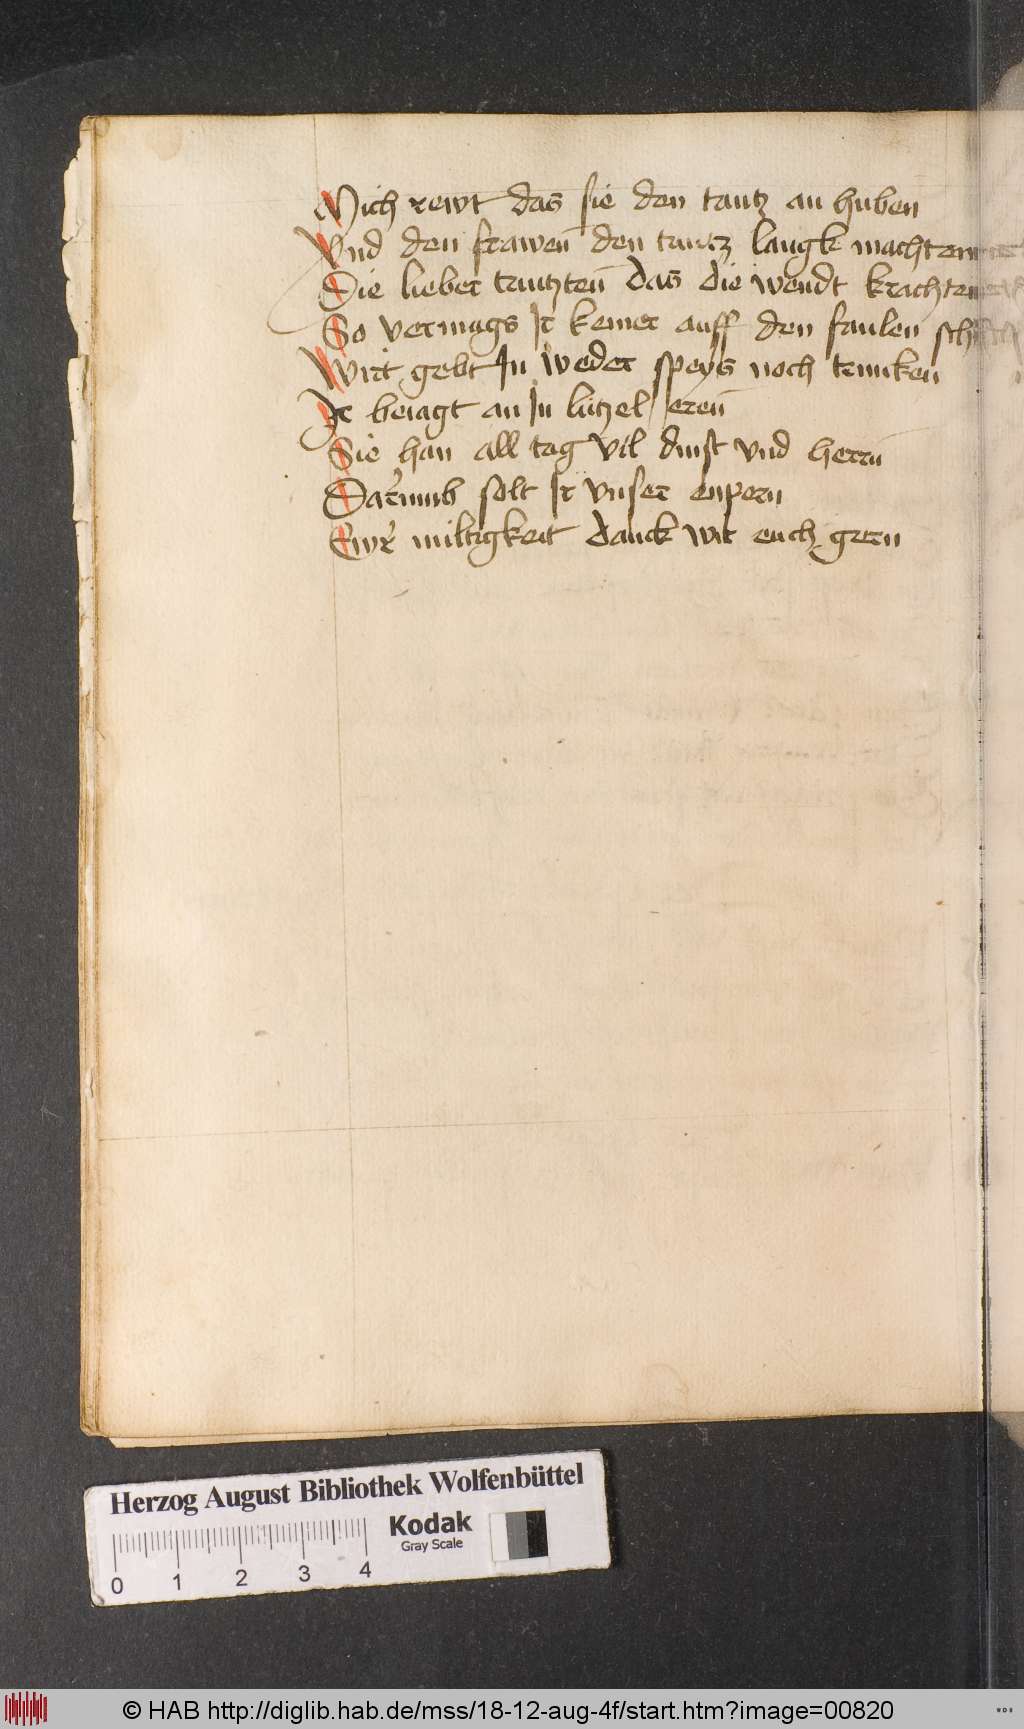 Mich rewt das sie den tantz an huben
Vnd den frawen den tantz langk machten
Die lieber tantzten das die wendt krachten
So vermags Ir keiner auff den faulen
Wirt gebt In weder speys noch trincken
Ir beiagt an In lützel eren
Sie han all tag vil dinst vnd herrn
Darumb solt Ir vnser enpern
Ewr miltigkeit danck wir euch gern
Herzog August Bibliothek Wolfenbüttel
Kodak
Gray Scale
0 1 2 3 4
© HAB http://diglib.hab.de/mss/18-12-aug-4f/start.htm?image=00820